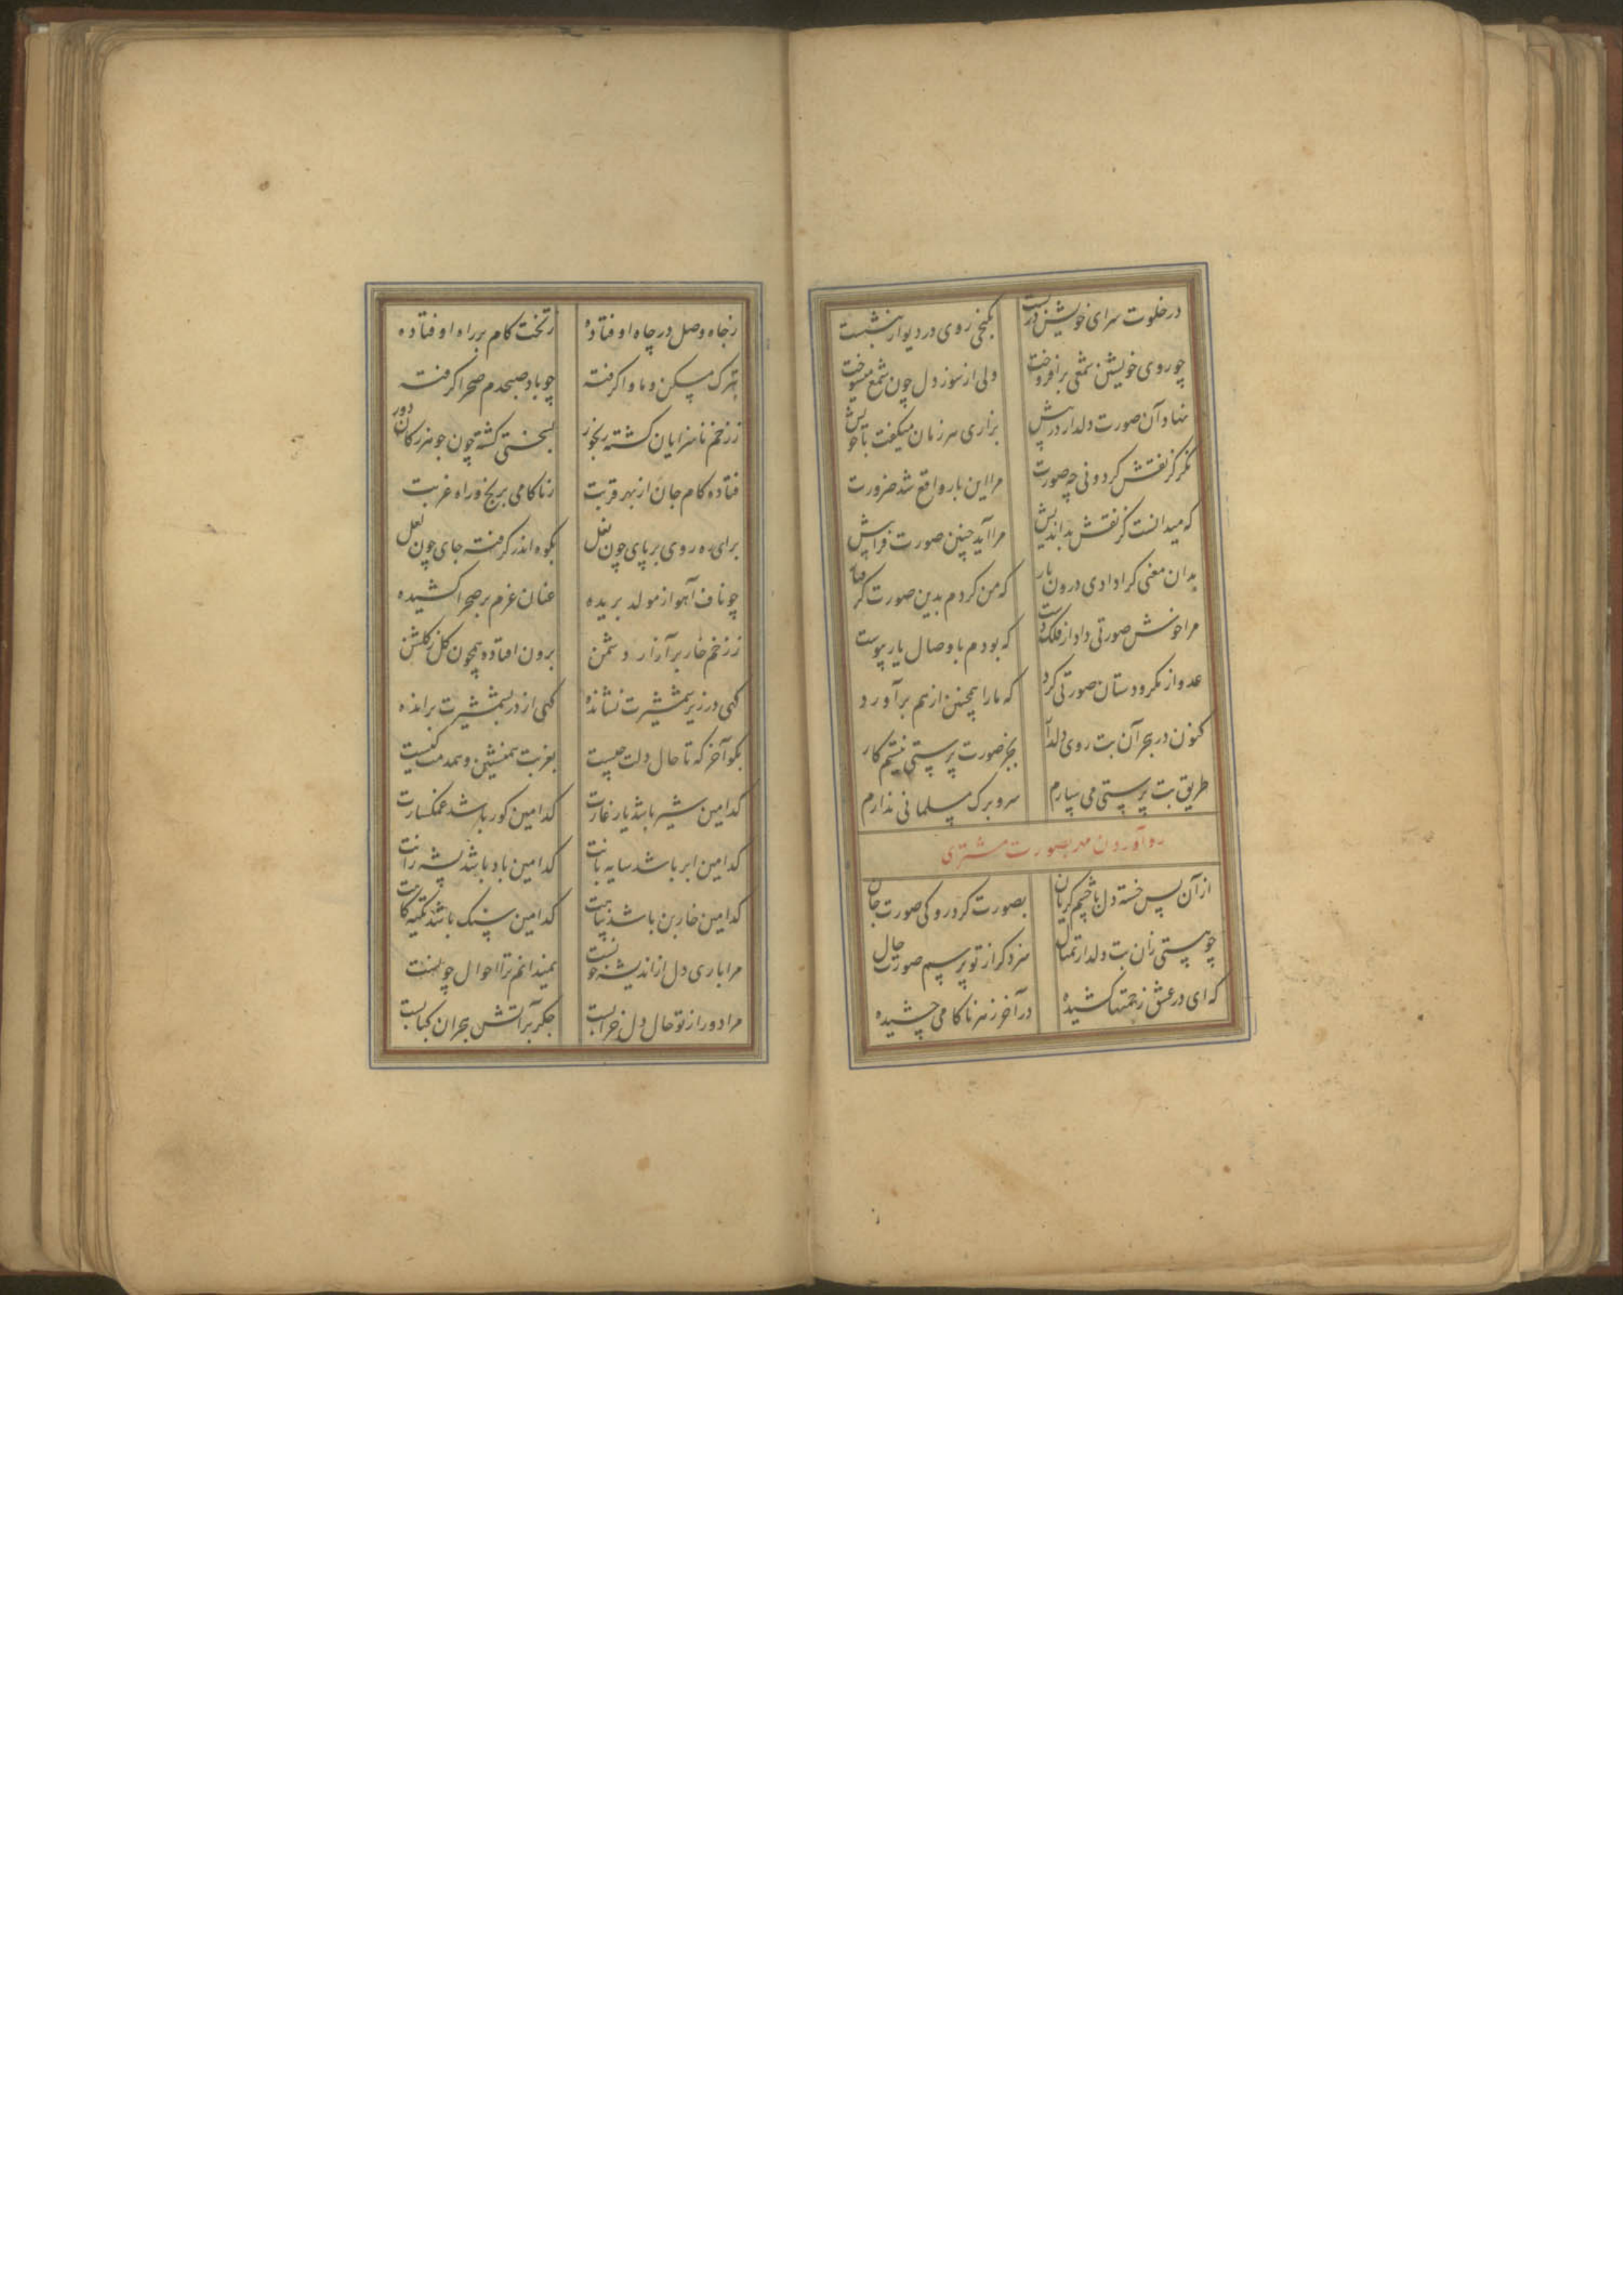 در خلوت سرای خویش در بست بکنجی روی در دیوار بنشست
چو روی خویشتن شمعی برافروخت ولی از سوز دل چون شمع میسوخت
نهاد آن صورت دلدار در پیش بزاری هر زمان میگفت با خویش
نگر کز نقش کردونی چه صورت مرا این بار واقع شد ضرورت
که میدانست کز نقش بداندیش مرا آید چنین صورت فراپیش
بدان معنی کرا دادی درون بار که من کردم بدین صورت
مرا خوش صورتی داد از فلک دست که بودم با وصال یار پیوست
عدو از مکر و دستان صورتی کرد که ما را همچنین از هم برآورد
کنون در هجر آن بت روی دلدار بجز صورت پرستی نیستم کار
طریق بت پرستی می سپارم سر و برک مسلمانی ندارم
رو آوردن مهر بصورت مشتری
از آن پس خسته دل با چشم کریان بصورت کرد رو کی صورت جان
چو هستی زان بت دلدار تمثال سزد کر از تو پرسم صورت حال
که ای در عشق زحمتها کشیده در آخر زهر ناکامی چشیده
ز جاه وصل در چاه اوفتاده ز تخت کام بر راه اوفتاده
بترک مسکن و ماوا کرفته چو باد صبحدم صحرا کرفته
ز زخم ناسزایان کشته رنجور بسختی کشته چون جوهر ز کان دور
فتاده کام جان از بهر قربت ز ناکامی برنج و راه غربت
برای ره روی بر پای چون نعل بکوه اندر کرفته جای چون لعل
چو ناف آهو از مولد بریده عنان عزم بر صحرا کشیده
ز زخم خار پر آزار دشمن برون افتاده همچون کل ز کلشن
کهی در زیر شمشیرت نشانده کهی از در بشمشیرت برانده
بکو آخر که تا حال دلت چیست بغربت همنشین و همدمت کیست
کدامین شیر باشد یار غارت کدامین کور باشد غمکسارت
کدامین ابر باشد سایه بانت کدامین باد باشد پشه رانت
کدامین خاربن باشد پناهت کدامین سنک باشد تکیه کاهت
مرا باری دل از اندیشه خونست نمیدانم ترا احوال چونست
مرا دور از تو حال دل خرابست جکر بر آتش هجران کبابست